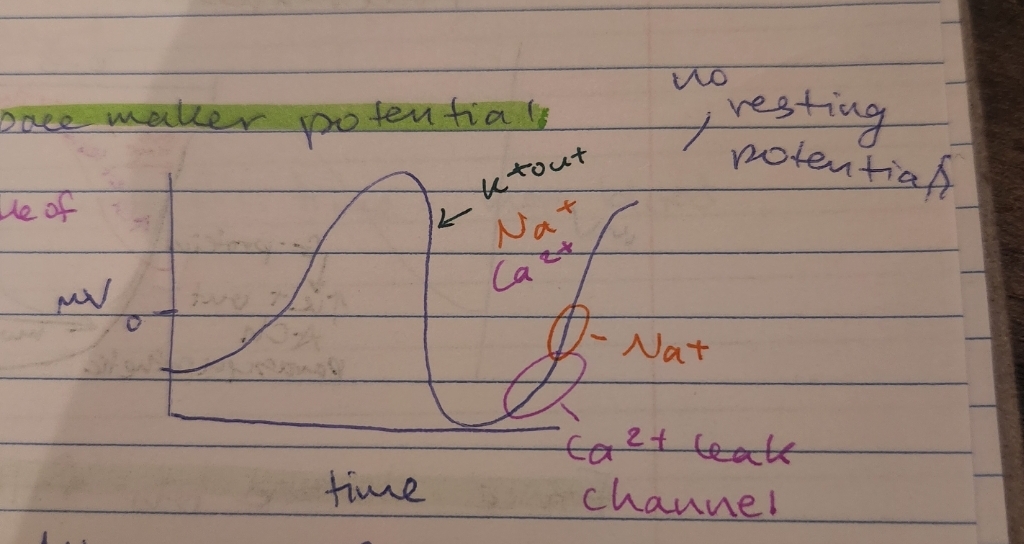 no
pacemaker potential
, resting
potential
K+out
Na+
Ca2+
mV
0
- Na+
Ca2+ leak
channel
time